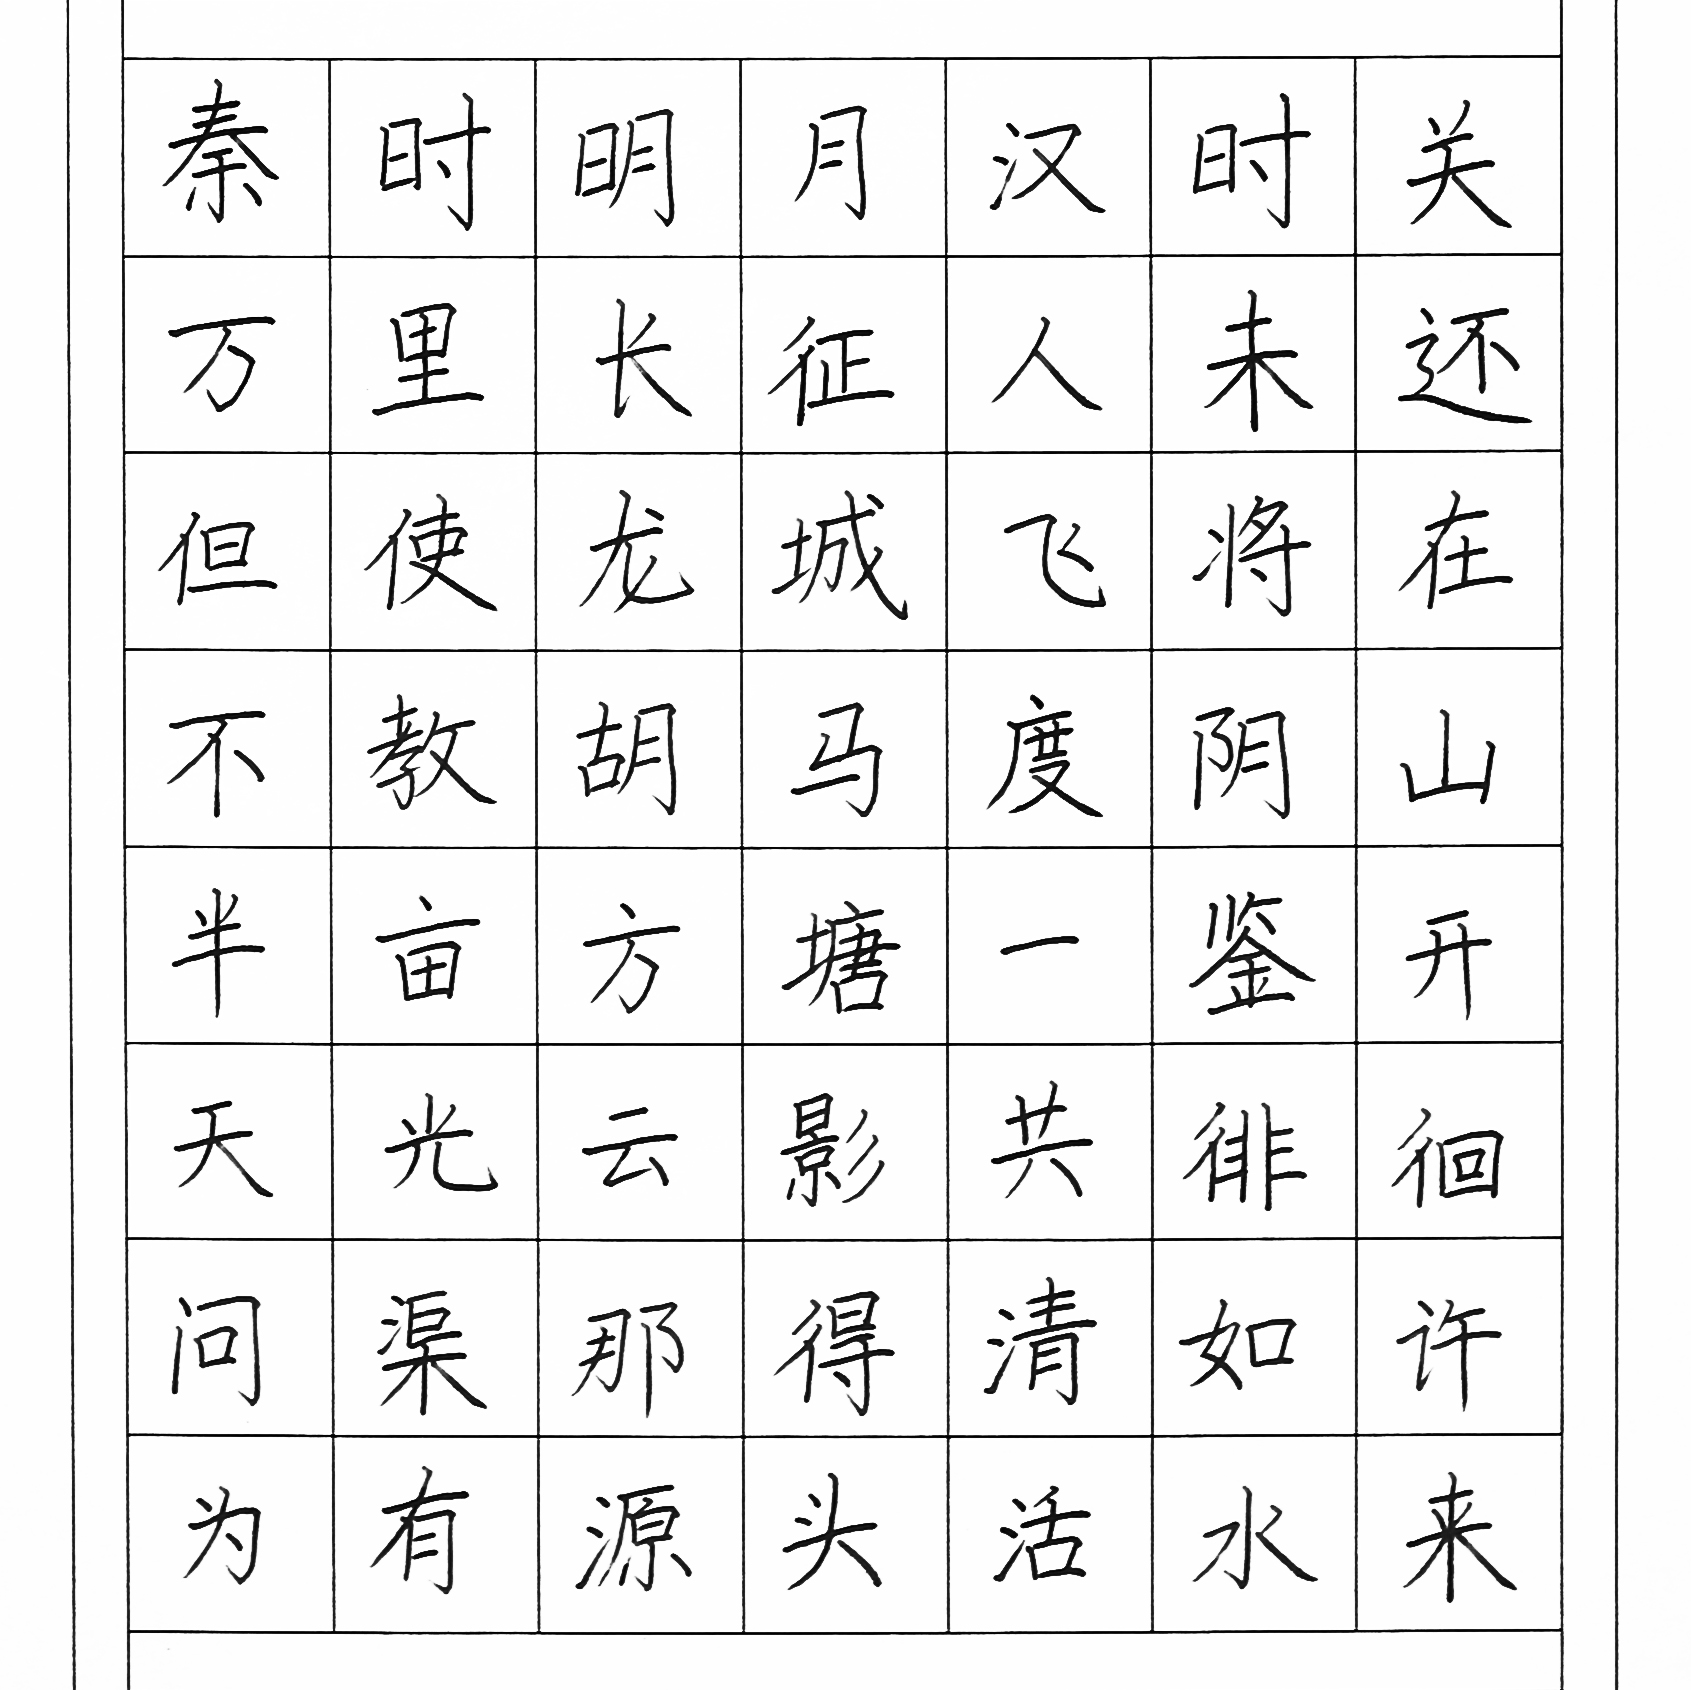 秦时明月汉时关
万里长征人未还
但使龙城飞将在
不教胡马度阴山
半亩方塘一鉴开
天光云影共徘徊
问渠那得清如许
为有源头活水来